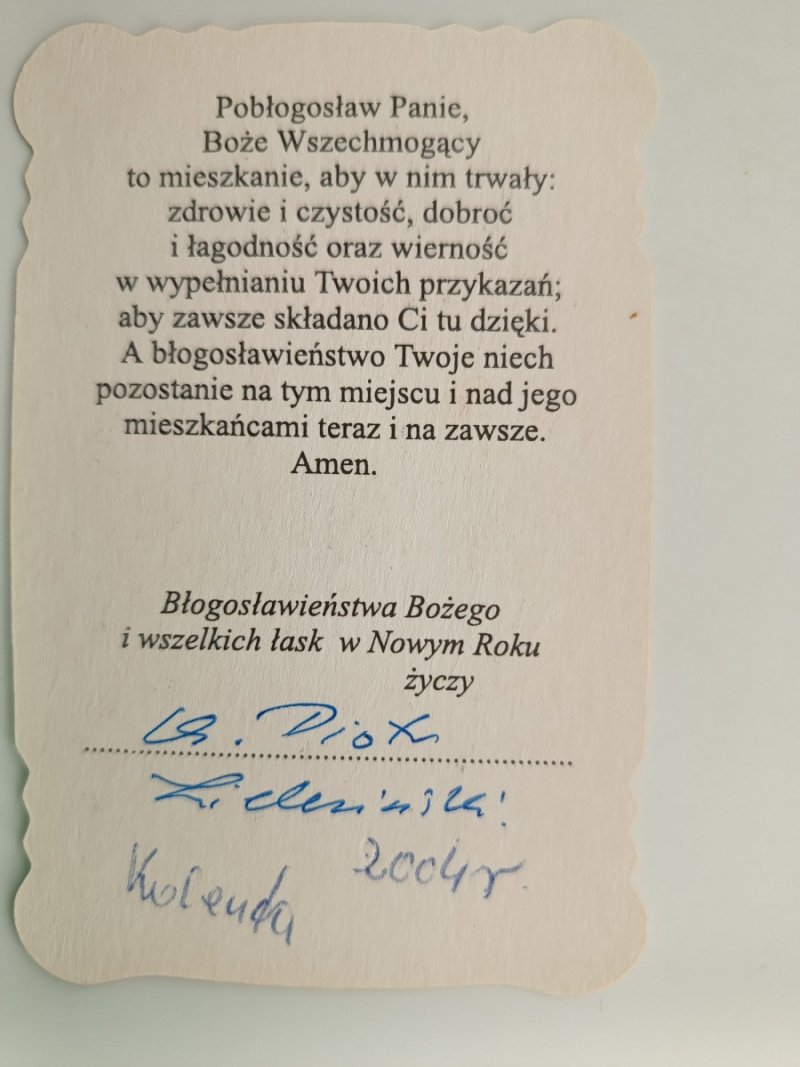 Pobłogosław Panie,
Boże Wszechmogący
to mieszkanie, aby w nim trwały:
zdrowie i czystość, dobroć
i łagodność oraz wierność
w wypełnianiu Twoich przykazań;
aby zawsze składano Ci tu dzięki.
A błogosławieństwo Twoje niech
pozostanie na tym miejscu i nad jego
mieszkańcami teraz i na zawsze.
Amen.
Błogosławieństwa Bożego
i wszelkich łask w Nowym Roku
życzy
Ks. Piotr
Kolenda 2004 r.